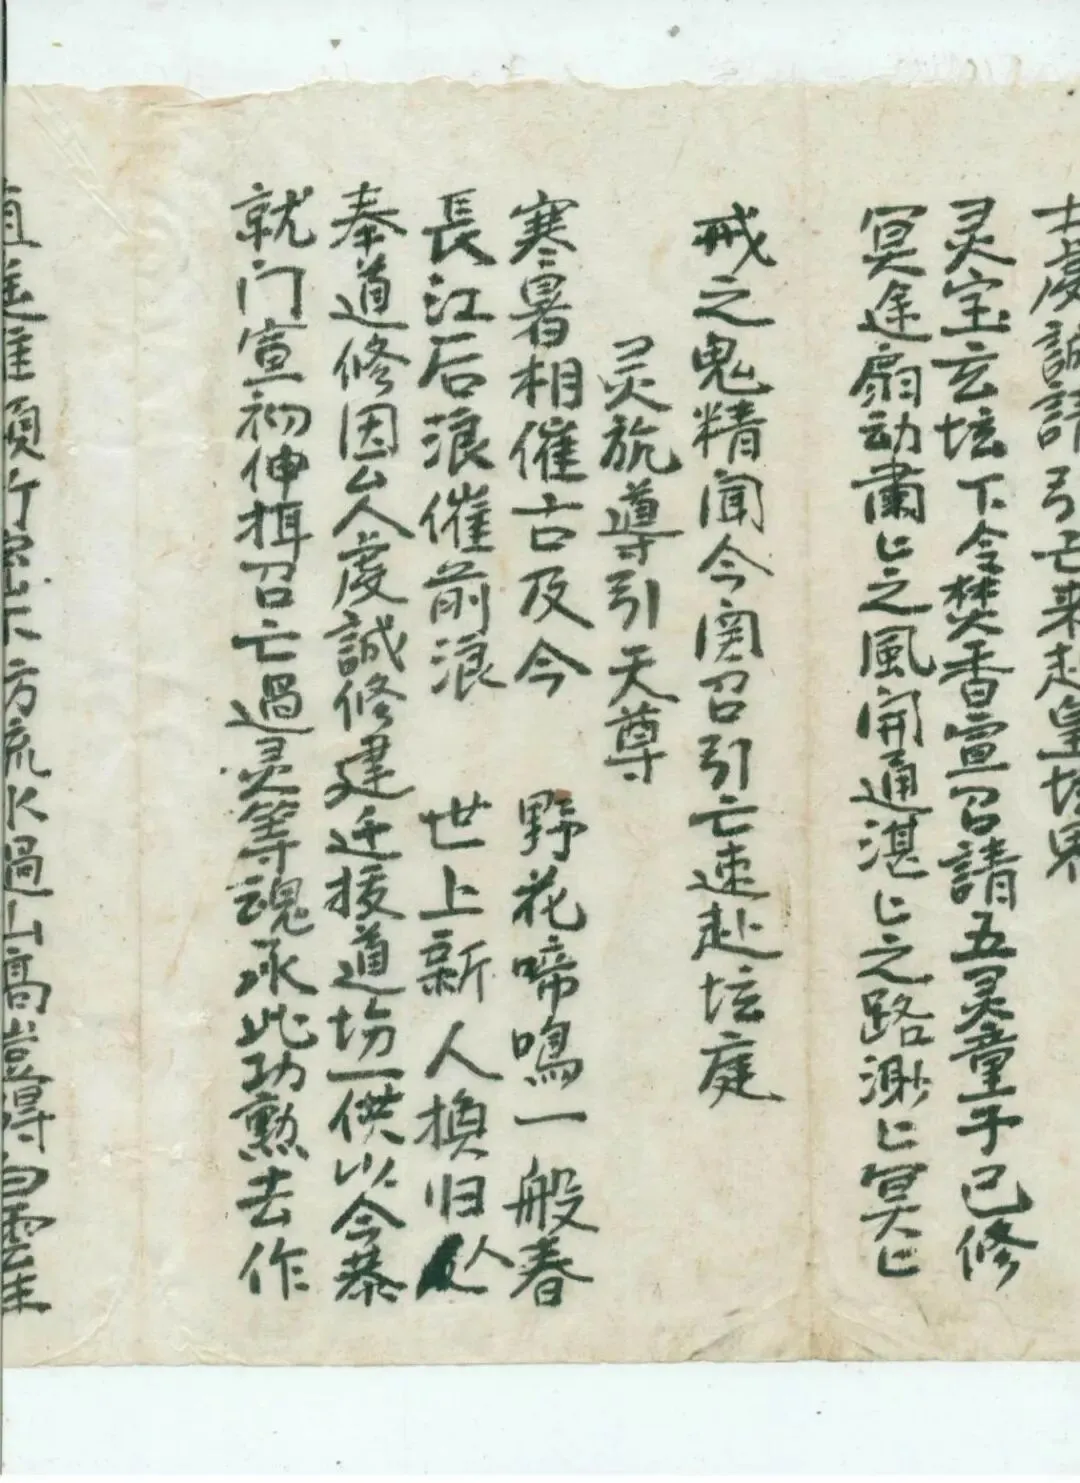 虔誠請引亡来赴皇坛界
灵宝玄坛下令焚香宣召請五灵童子已修
冥途扇动肅〻之風開通湛〻之路渺〻冥〻
戒之鬼精闻今関召引亡速赴坛庭
灵旐導引天尊
寒暑相催古及今 野花啼鳴一般春
長江后浪催前浪 世上新人换归人
奉道修因厶人虔誠修建迁拔道場一供以今恭
就门宣初伸揖召亡過灵等魂承此功勲去作
直進 須 方流水過山高豈得白雲